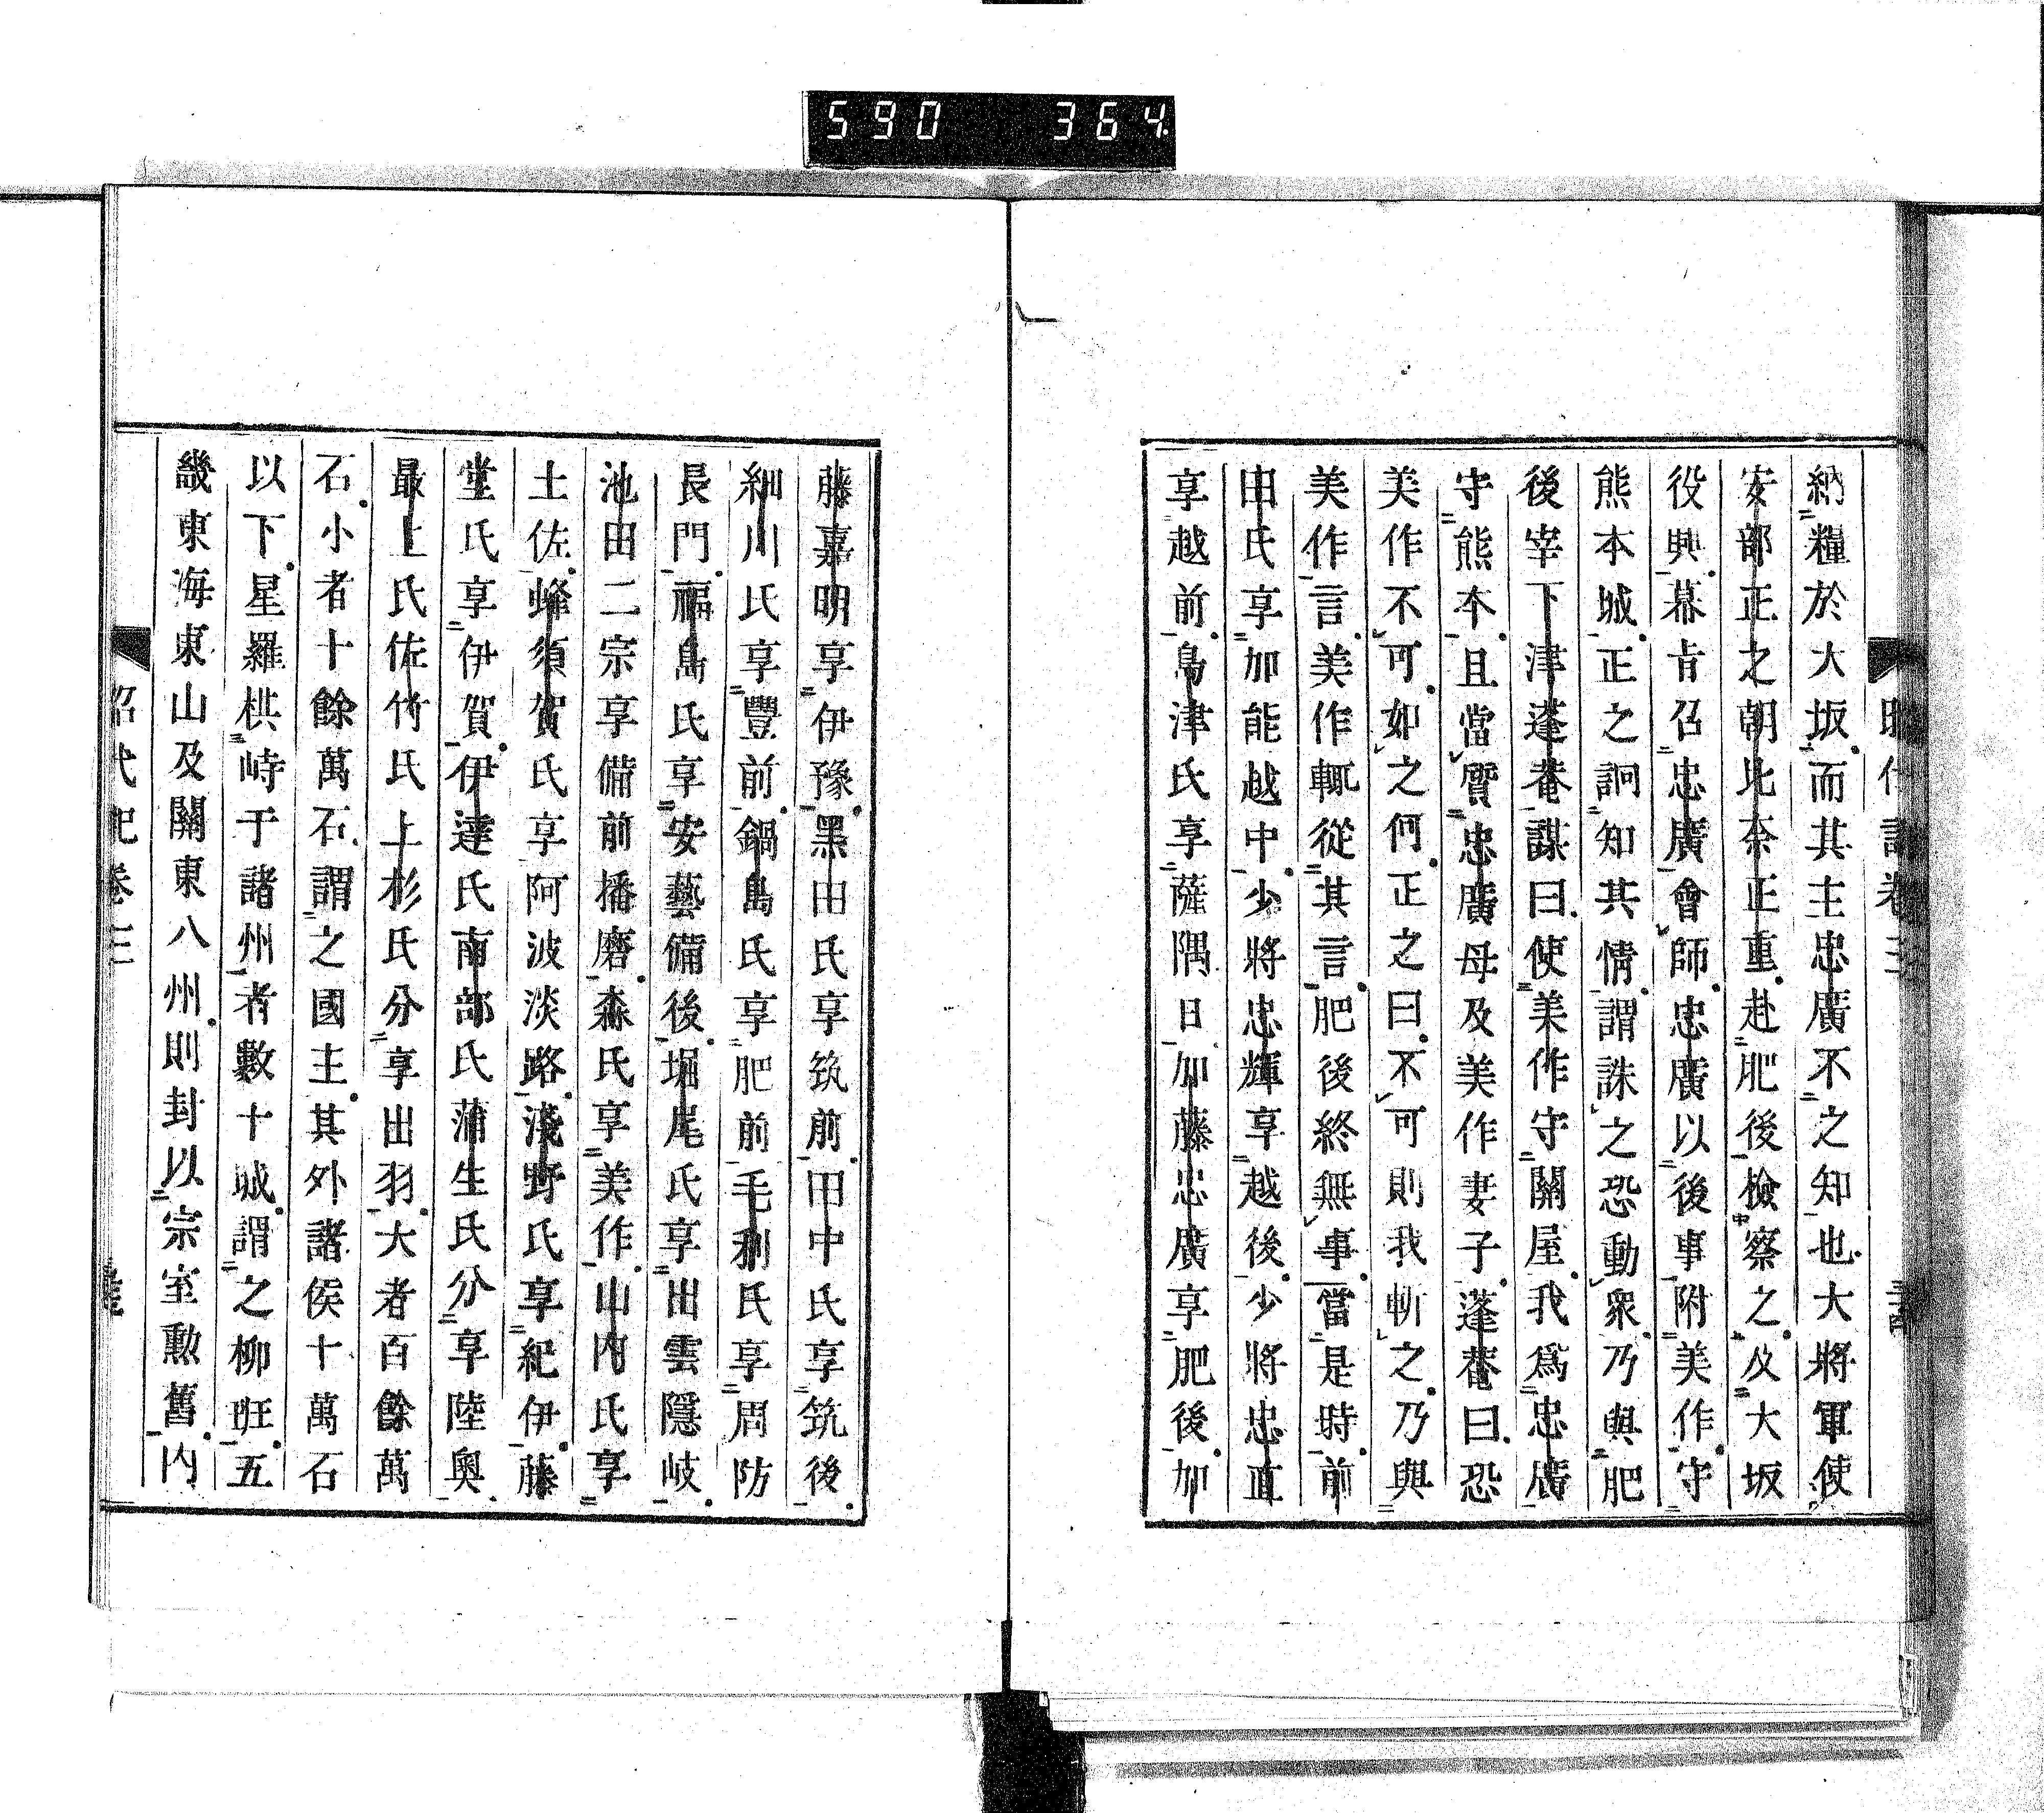 590 364
納糧於大坂而其主忠廣不之知也大將軍使
安部正之朝比奈正重赴肥後檢察之及大坂
役興幕府召忠廣會師忠廣以後事附美作守
熊本城正之詗知其情謂誅之恐動衆乃與肥
後宰下津蓬菴謀曰使美作守關屋我爲忠廣
守熊本且當質忠廣母及美作妻子蓬菴曰恐
美作不可如之何正之曰不可則我斬之乃與
美作言美作輒從其言肥後終無事當是時前
田氏享加能越中少將忠輝享越後少將忠直
享越前島津氏享薩隅日加藤忠廣享肥後加
藤嘉明享伊豫黑田氏享筑前田中氏享筑後
細川氏享豐前鍋島氏享肥前毛利氏享周防
長門福島氏享安藝備後堀尾氏享出雲隱岐
池田二宗享備前播磨森氏享美作山內氏享
土佐蜂須賀氏享阿波淡路淺野氏享紀伊藤
堂氏享伊賀伊達氏南部氏蒲生氏分享陸奧
最上氏佐竹氏上杉氏分享出羽大者百餘萬
石小者十餘萬石謂之國主其外諸侯十萬石
以下星羅棋峙于諸州者數十城謂之柳班五
畿東海東山及關東八州則封以宗室勳舊內
昭代記卷三